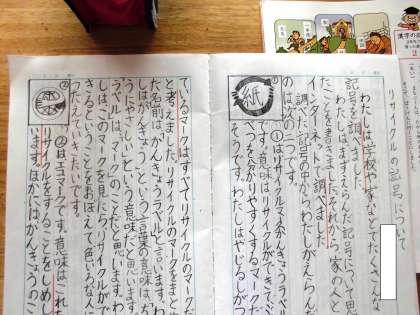 リサイクルの記号について
わたしは学校や家などでたくさんな
記号を調べました。
わたしは、まずえらんだ記号について思っ
たことを書きました。それから、家の人と
インターネットで調べました。
調べた記号の中から、わたしがえらんだ
のは次の二つです。
紙
①はリサイクルマークがんきょうラベル
です。意味はリサイクルができて、ご
べつを分かりやすくするマークだ
そうです。わたしはやじるしがつ
ているマークは、すべてリサイクルのマーク
と考えました。リサイクルのマークをまとめ
た名前は、がんきょうラベルと言います。わ
しは、がんきょうという言葉の意味は、
うにやさしいという意味だと思います。
ラベルは、マークのことだと思います。わ
しは、このマークを見たら、リサイクルがで
きるということをおぼえて、色いろな人に
つたえていきたいです。
②
②はエコマークです。意味は、これも
リサイクルをすることをしめし
います。ほかには、がんきょうのこ